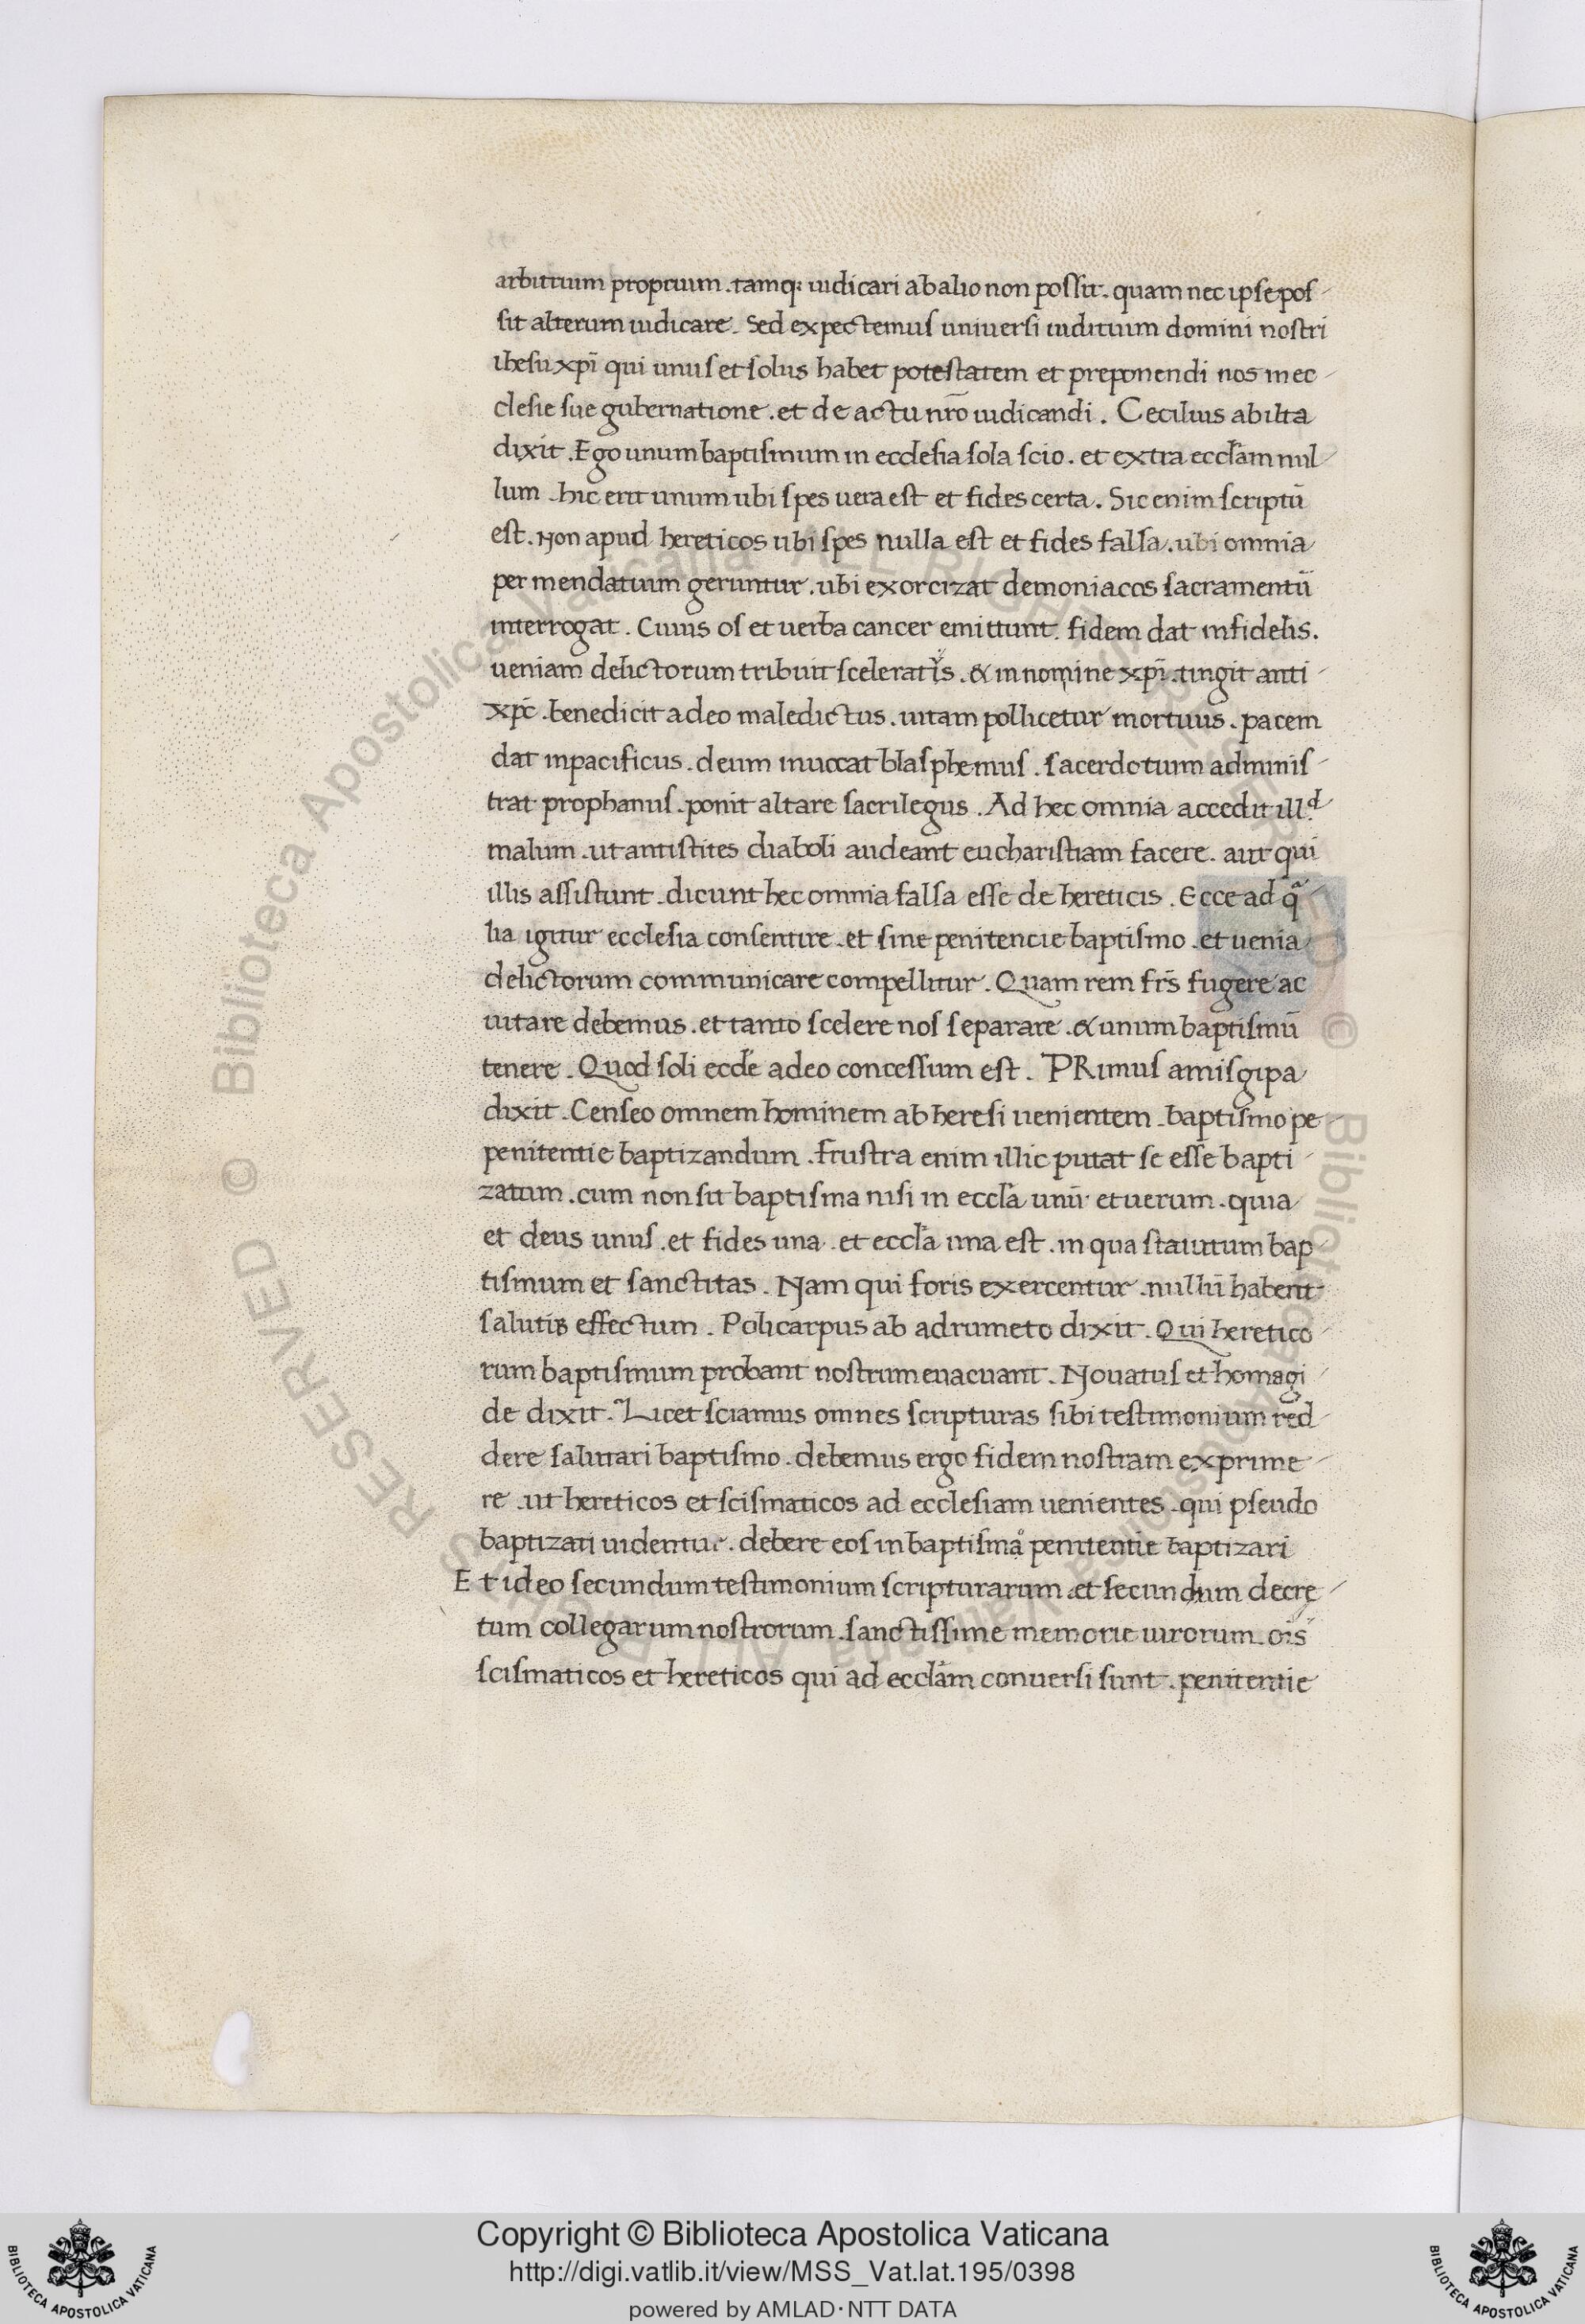 arbitrium proprium . tamq; iudicari ab alio non possit . quam nec ipse pos
sit alterum iudicare . Sed expectemus uniuersi iuditium domini nostri
ihesu xp̄i qui unus et solus habet potestatem et preponendi nos in ec
clesie sue gubernatione . et de actu nr̄o iudicandi . Cecilius abilta
dixit . Ego unum baptismum in ecclesia sola scio . et extra eccl̄am nul
lum . hic erit unum ubi spes uera est et fides certa . Sic enim scriptū
est . Non apud hereticos ubi spes nulla est et fides falsa . ubi omnia
per mendatium geruntur . ubi exorcizat demoniacos sacramentū
interrogat . Cuius os et uerba cancer emittunt . fidem dat infidelis .
ueniam delictorum tribuit sceleratis . & in nomine xp̄i . tingit anti
xp̄c . benedicit adeo maledictus . uitam pollicetur mortuus . pacem
dat inpacificus . deum inuocat blasphemus . sacerdotium adminis
trat prophanus . ponit altare sacrilegus . Ad hec omnia accedit illᵈ
malum . ut antistites diaboli audeant eucharistiam facere . aut qui
illis assistunt . dicunt hec omnia falsa esse de hereticis . Ecce ad qᵃ
lia igitur ecclesia consentire . et sine penitencie baptismo . et uenia
delictorum communicare compellitur . Quam rem fr̄s fugere ac
uitare debemus . et tanto scelere nos separare . & unum baptismū
tenere . Quod soli eccl̄e adeo concessum est . PRimus amisgipa
dixit . Censeo omnem hominem ab heresi uenientem . baptismo pe
penitentie baptizandum . frustra enim illic putat se esse bapti
zatum . cum non sit baptisma nisi in eccl̄a unū et uerum . quia
et deus unus . et fides una . et eccl̄a una est . in qua statutum bap
tismum et sanctitas . Nam qui foris exercentur . nullū habent
salutis effectum . Policarpus ab adrumeto dixit . Qui heretico
rum baptismum probant nostrum euacuant . Nouatus et homagi
de dixit . Licet sciamus omnes scripturas sibi testimonium red
dere salutari baptismo . debemus ergo fidem nostram exprime
re . ut hereticos et scismaticos ad ecclesiam uenientes . qui pseudo
baptizati uidentur . debere eos in baptismaͦ penitentie baptizari
Et ideo secundum testimonium scripturarum et secundum decre
tum collegarum nostrorum . sanctissime memorie uirorum . oīs
scismaticos et hereticos qui ad eccl̄am conuersi sunt . penitentie
Copyright © Biblioteca Apostolica Vaticana
http://digi.vatlib.it/view/MSS_Vat.lat.195/0398
powered by AMLAD·NTT DATA
BIBLIOTECA APOSTOLICA VATICANA
BIBLIOTECA APOSTOLICA VATICANA
© Biblioteca Apostolica Vaticana ALL RIGHTS RESERVED
© Biblioteca Apostolica Vaticana ALL RIGHTS RESERVED